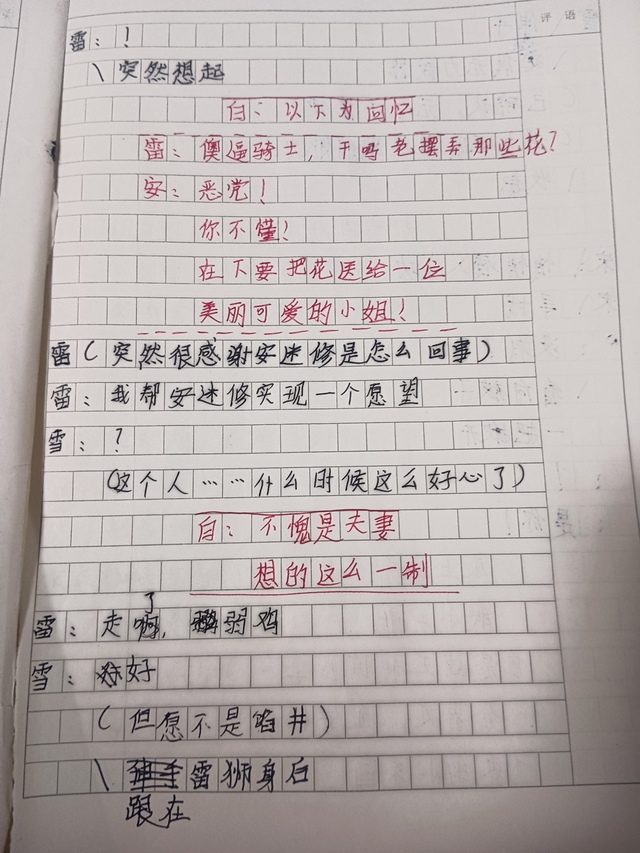 评 语
雷：！
\ 突然想起
白：以下为回忆
雷：傻逼骑士，干吗老摆弄那些花？
安：恶党！
你不懂！
在下要把花送给一位
美丽可爱的小姐！
雷（突然很感谢安迷修是怎么回事）
雷：我帮安迷修实现一个愿望
雪：？
（这个人……什么时候这么好心了）
白：不愧是夫妻
想的这么一制
雷：走了，弱鸡
雪：好
（但愿不是陷井）
\ 跟在雷狮身后